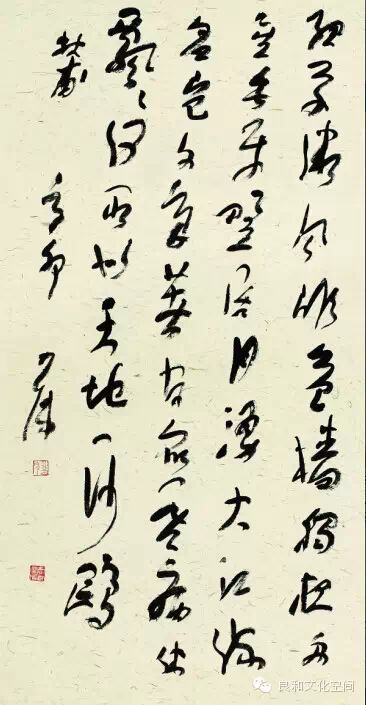 细草微风岸危樯独夜舟
星垂平野阔月涌大江流
名岂文章著官应老病休
飘飘何所似天地一沙鸥
杜甫 辛卯
良和文化空间